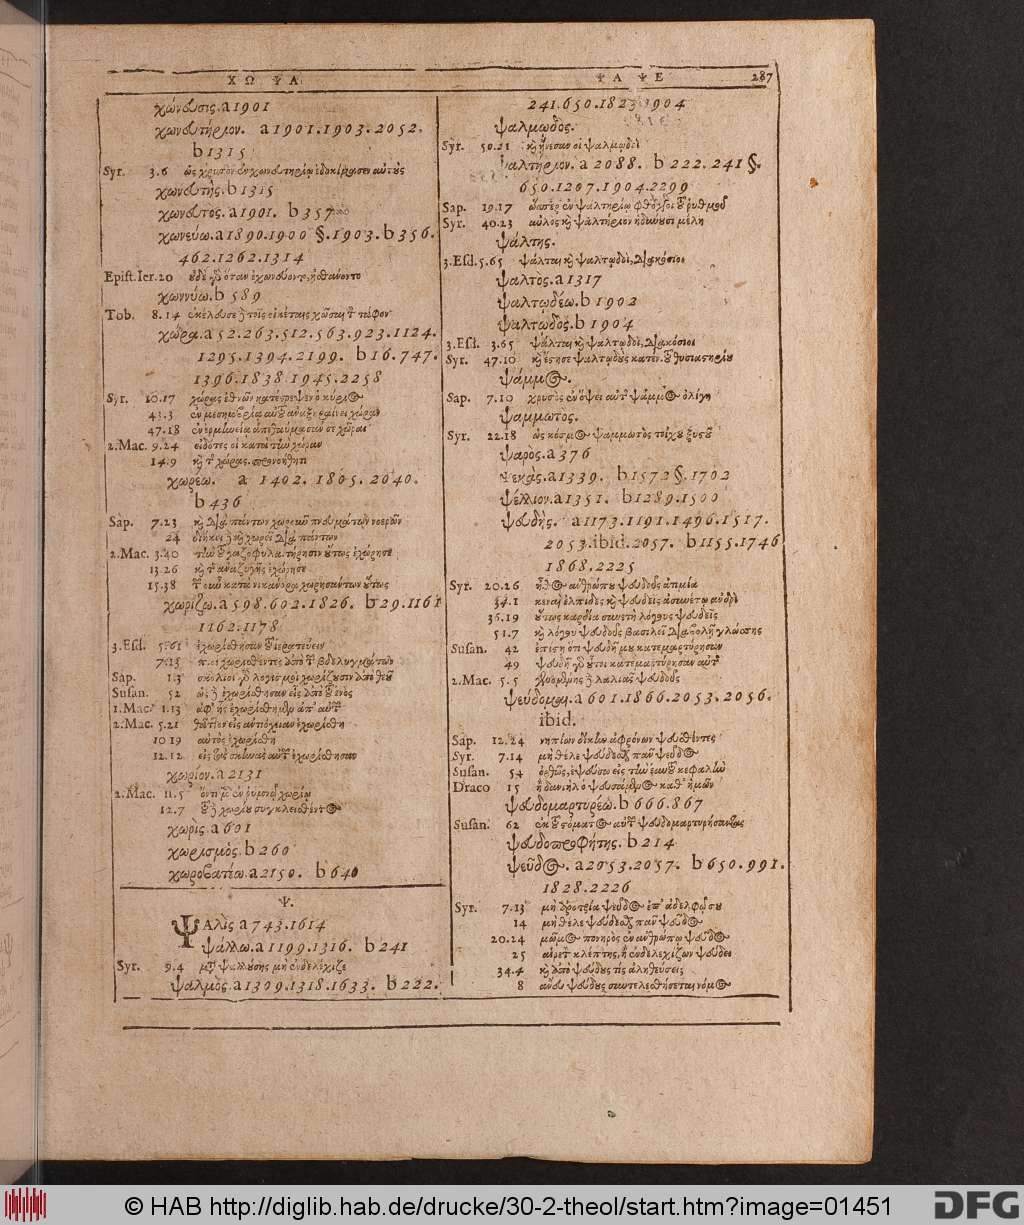 Χ Ω Ψ Α
Ψ Α Ψ Ε 287
χώνευσις. a 1901
χωνευτήριον. a 1901. 1903. 2052.
b 1315
Syr. 3.6 ὡς χρυσὸν ἐν χωνευτηρίῳ ἐδοκίμασεν αὐτοὺς
χωνευτὴς. b 1315
χωνευτὸς. a 1901. b 357
χωνεύω. a 1890. 1900 §. 1903. b 356.
462. 1262. 1314
Epist. Ier. 20 οὐδὲ γὰρ ὅταν ἐχωνεύοντο, ᾐσθάνοντο
χωννύω. b 589
Tob. 8.14 ἐκέλευσε τοῖς οἰκέταις χῶσαι τὸν τάφον
χώρα. a 52. 263. 512. 563. 923. 1124.
1295. 1394. 2199. b 16. 747.
1396. 1838. 1945. 2258
Syr. 10.17 χώρας ἐθνῶν κατέστρεψεν ὁ κύριος
43.3 ἐν μεσημβρίᾳ αὐτοῦ ἀναξηραίνει χώραν
47.18 ἐν ἑρμηνείᾳ ἀπεθαύμασάν σε χῶραι
2. Mac. 9.24 εἰδότες οἱ κατὰ τὴν χώραν
14.9 καὶ τῆς χώρας. προνοήθητι
χωρέω. a 1402. 1805. 2040.
b 436
Sap. 7.23 καὶ διὰ πάντων χωροῦν πνευμάτων νοερῶν
24 διήκει καὶ χωρεῖ διὰ πάντων
2. Mac. 3.40 τὴν τοῦ γαζοφυλα. τήρησιν οὕτως ἐχώρησε
13.26 καὶ τῆς ἀναζυγῆς ἐχώρησε
15.38 τῶν οὖν κατὰ νικάνορα χωρησάντων οὕτως
χωρίζω. a 598. 602. 1826. b 29. 1161
1162. 1178
3. Esd. 5.61 ἐχωρίσθησαν τοῦ ἱερατεύειν
7.13 χωρισθέντες ἀπὸ τῶν βδελυγμάτων
Sap. 1.3 σκολιοὶ γὰρ λογισμοὶ χωρίζουσιν ἀπὸ θεοῦ
Susan. 52 ὡς ἐχωρίσθησαν εἷς ἀπὸ τοῦ ἑνὸς
1. Mac. 1.13 ἀφ' ἧς ἐχωρίσθημεν ἀπ' αὐτῶν
2. Mac. 5.21 θᾶττον εἰς αντιόχιαν ἐχωρίσθη
10 19 αὐτὸς ἐχωρίσθη
12.12 εἰς τὰς σκηνὰς αὐτῶν ἐχωρίσθησαν
χωρίον. a 2131
2. Mac. 11.5 ὄντι μὲν ἐρυμνῷ χωρίῳ
12.7 τοῦ χωρίου συγκλεισθέντος
χωρὶς. a 601
χωρισμὸς. b 260
χωροβατέω. a 2150. b 640
Ψ.
ΨΑλὶς a 743. 1614
ψάλλω. a 1199. 1316. b 241
Syr. 9.4 μετὰ ψαλλούσης μὴ ἐνδελέχιζε
ψαλμὸς. a 1309. 1318. 1633. b 222.
241. 650. 1823. 1904
ψαλμωδὸς.
Syr. 50.21 καὶ ᾔνεσαν οἱ ψαλμωδοὶ
ψαλτήριον. a 2088. b 222. 241 §.
650. 1207. 1904. 2299
Sap. 19.17 ὥσπερ ἐν ψαλτηρίῳ φθόγγοι τοῦ ῥυθμοῦ
Syr. 40.23 αὐλὸς καὶ ψαλτήριον ἡδύνουσι μέλη
ψάλτης.
3. Esd. 5.65 ψάλται καὶ ψαλτῳδοὶ, διακόσιοι
ψαλτὸς. a 1317
ψαλτωδέω. b 1902
ψαλτωδὸς. b 1904
3. Esd. 5.65 ψάλται καὶ ψαλτῳδοὶ, διακόσιοι
Syr. 47.10 καὶ ἔστησε ψαλτῳδοὺς κατέν. τοῦ θυσιαστηρίου
ψάμμος.
Sap. 7.10 χρυσὸς ἐν ὄψει αὐτῆς ψάμμος ὀλίγη
ψαμμωτὸς.
Syr. 22.18 ὡς κόσμος ψαμμωτὸς τοίχου ξυστοῦ
ψαρος. a 376
ψεκὰς. a 1339. b 1572 §. 1702
ψέλλιον. a 1351. b 1289. 1500
ψευδὴς. a 1173. 1191. 1496. 1517.
2053. ibid. 2057. b 1155. 1746
1868. 2225
Syr. 20.26 ἦθος ἀνθρώπου ψευδοῦς ἀτιμία
34.1 κεναὶ ἐλπίδες καὶ ψευδεῖς ἀσυνέτῳ ἀνδρὶ
36.19 οὕτως καρδία συνετὴ λόγους ψευδεῖς
51.7 καὶ λόγου ψευδοῦς βασιλεῖ διαβολὴ γλώσσης
Susan. 42 ἐπίστῃ ὅτι ψευδῆ μου κατεμαρτύρησαν
49 ψευδῆ γὰρ οὗτοι κατεμαρτύρησαν αὐτῆς
2. Mac. 5.5 γενομένης λαλιᾶς ψευδοῦς
ψεύδομαι. a 601. 1866. 2053. 2056.
ibid.
Sap. 12.24 νηπίων δίκην ἀφρόνων ψευσθέντες
Syr. 7.14 μὴ θέλε ψεύδεσθαι πᾶν ψεῦδος
Susan. 54 ὀρθῶς, ἔψευσαι εἰς τὴν ἑαυτοῦ κεφαλὴν
Draco 15 ἢ δανιὴλ ὁ ψευσάμενος καθ' ἡμῶν
ψευδομαρτυρέω. b 666. 867
Susan. 62 ἐκ τοῦ στόματος αὐτῶν ψευδομαρτυρήσαντας
ψευδοπροφήτης. b 214
ψεῦδος. a 2053. 2057. b 650. 991.
1828. 2226
Syr. 7.13 μὴ ἀροτρία ψεῦδος ἐπ' ἀδελφῷ σου
14 μὴ θέλε ψεύδεσθαι πᾶν ψεῦδος
20.24 μῶμος πονηρὸς ἐν ἀνθρώπῳ ψεῦδος
25 αἱρετὸν κλέπτης, ἢ ἐνδελεχίζων ψεύδει
34.4 καὶ ἀπὸ ψεύδους τίς ἀληθεύσεις
8 ἄνευ ψεύδους συντελεσθήσεται νόμος
© HAB http://diglib.hab.de/drucke/30-2-theol/start.htm?image=01451
DFG